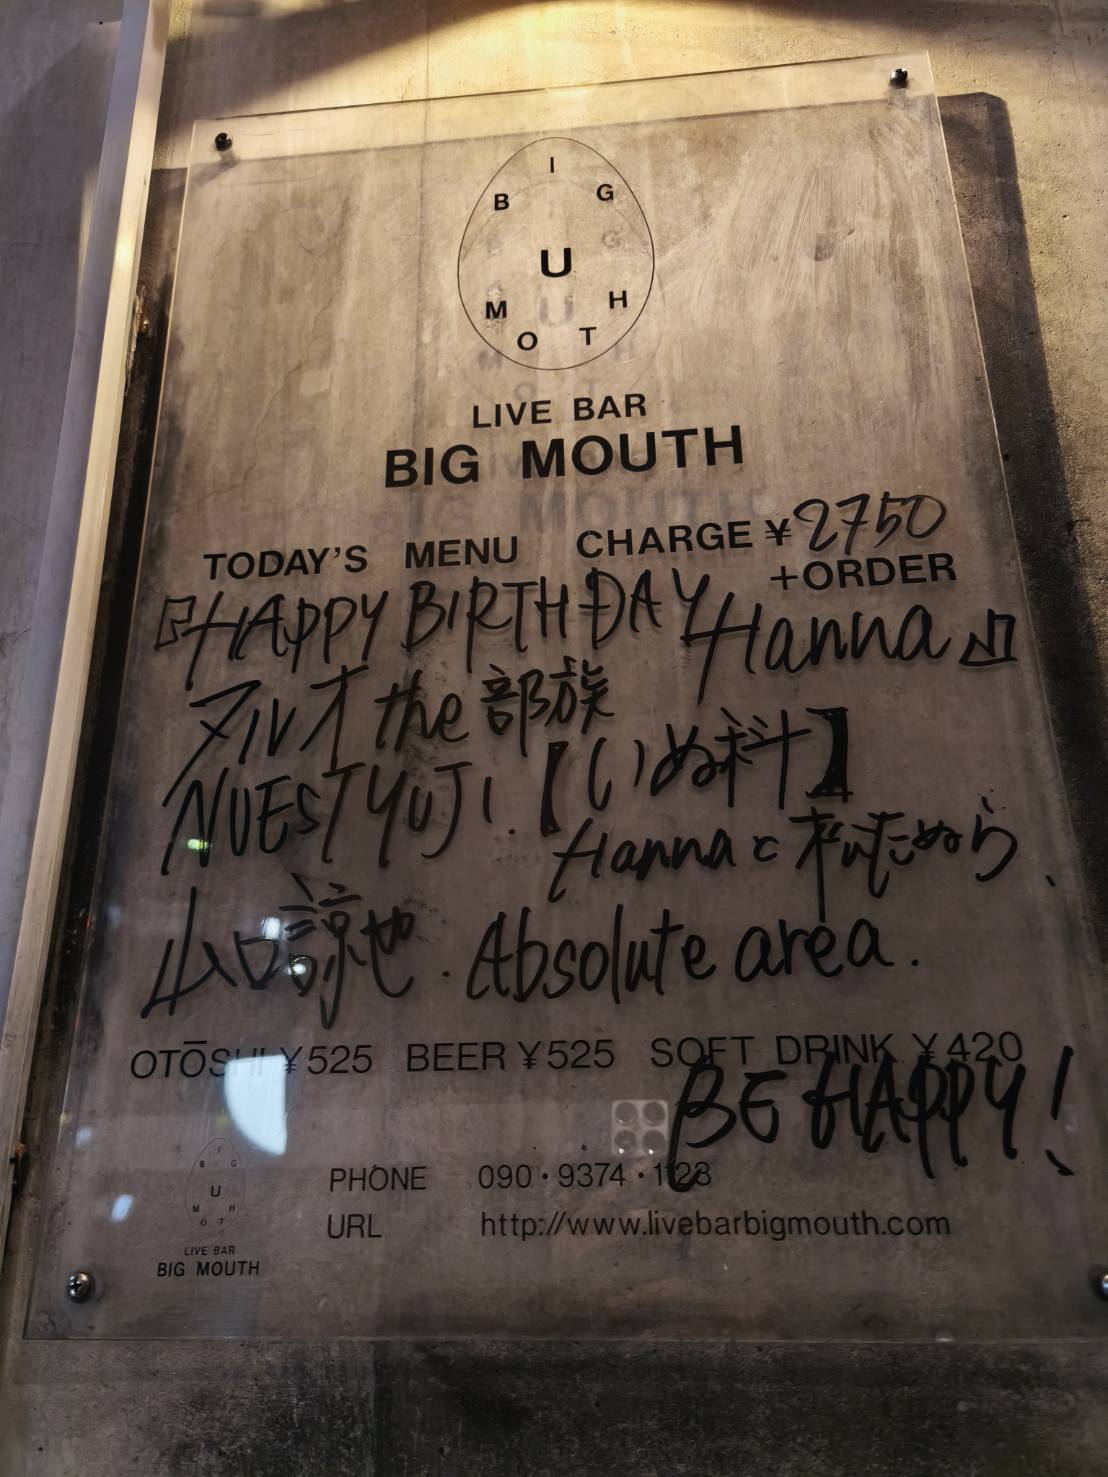 BIG
U
MOTH
LIVE BAR
BIG MOUTH
TODAY'S MENU CHARGE ¥2750
+ORDER
『HAPPY BIRTHDAY Hanna』
ヌルオ the 部族
NUEST YUJI.【いぬ料】
Hannaと
山口諒也. Absolute area.
OTŌSHI ¥525 BEER ¥525 SOFT DRINK ¥420
BE HAPPY!
PHONE 090・9374・1128
URL http://www.livebarbigmouth.com
BIG
U
MOTH
LIVE BAR
BIG MOUTH